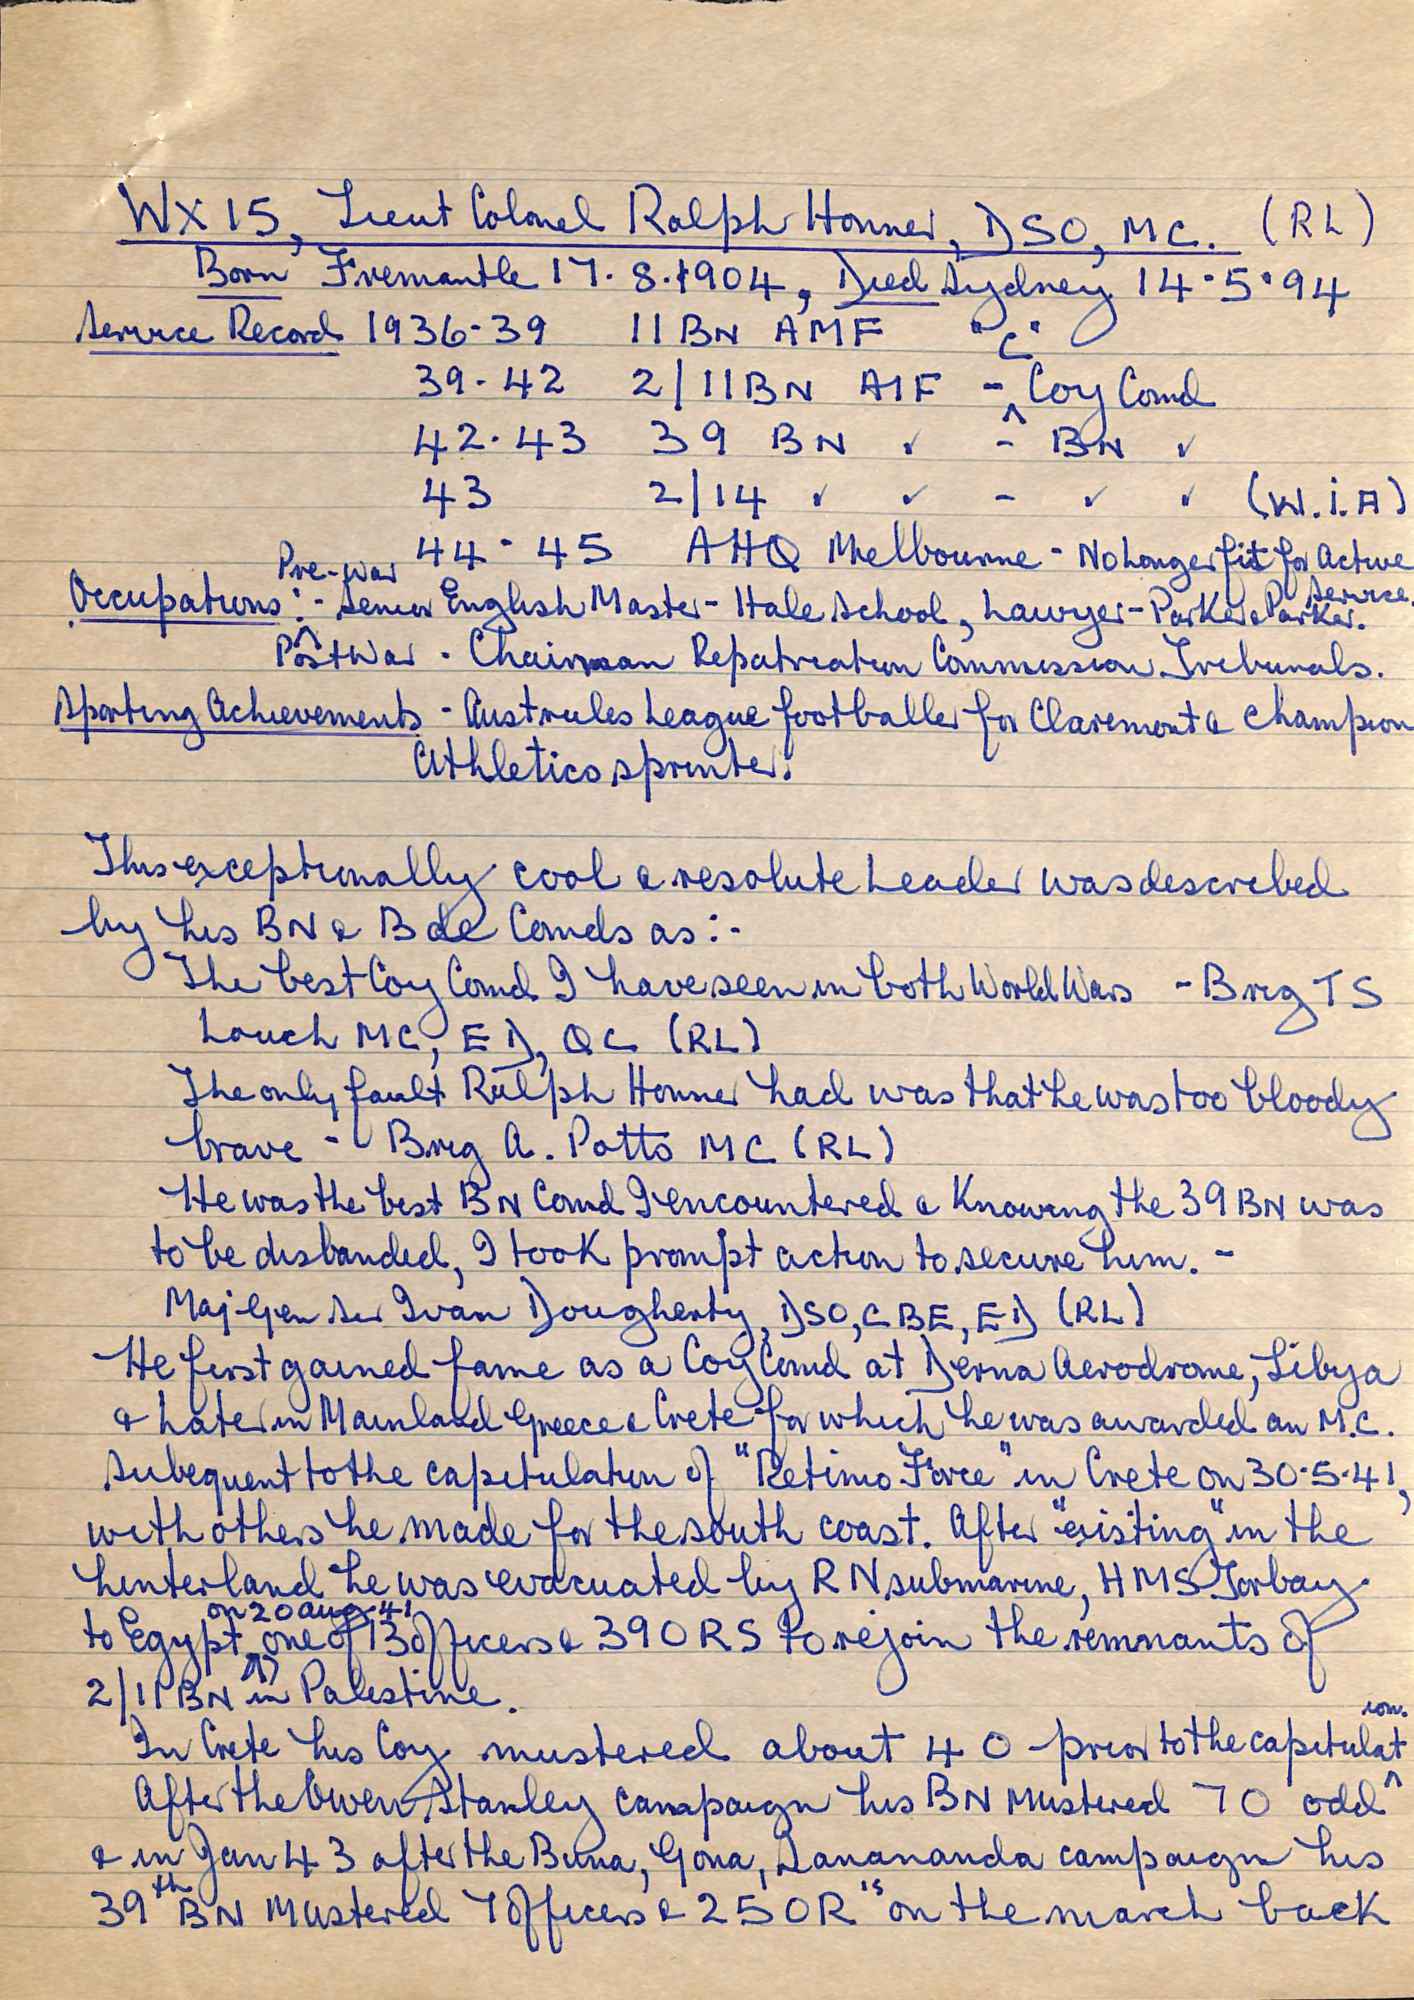 WX15, Lieut Colonel Ralph Honner, DSO, MC. (RL)
Born Fremantle 17.8.1904, Died Sydney 14.5.94
Service Record 1936-39 11BN AMF "C"
39-42 2/11BN AIF - ^ Coy Comd
42-43 39 BN ✓ - BN ✓
43 2/14 ✓ ✓ - ✓ ✓ (W.I.A)
44-45 AHQ Melbourne - No Longer fit for Active
Pre-war Service.
Occupations:- Senior English Master - Hale School, Lawyer - Parker & Parker.
Post War - Chairman Repatriation Commission Tribunals.
Sporting Achievements - Aust rules League footballer for Claremont & champion
Athletics sprinter.
This exceptionally cool & resolute Leader was described
by his BN & Bde Comds as:-
The best Coy Comd I have seen in both World Wars - Brig TS
Louch MC, ED, QC (RL)
The only fault Ralph Honner had was that he was too bloody
brave - Brig A. Potts MC (RL)
He was the best BN Comd I encountered & Knowing the 39 BN was
to be disbanded, I took prompt action to secure him. -
Maj-Gen Sir Ivan Dougherty, DSO, CBE, ED (RL)
He first gained fame as a Coy Comd at Derna Aerodrome, Libya
& Later in Mainland Greece & Crete for which he was awarded an M.C.
Subequent to the capitulation of "Retimo Force" in Crete on 30.5.41,
with others he made for the south coast. After "existing" in the
hinterland he was evacuated by RN submarine, HMS Torbay.
on 20 Aug 41
to Egypt, one of 13 officers & 39 ORS to rejoin the remnants of
2/11 BN in Palestine.
In Crete his Coy mustered about 40 prior to the capitulation.
After the Owen Stanley campaign his BN Mustered 70 odd
& in Jan 43 after the Buna, Gona, Sanananda campaign his
39th BN Mustered 7 officers & 25 OR's on the march back